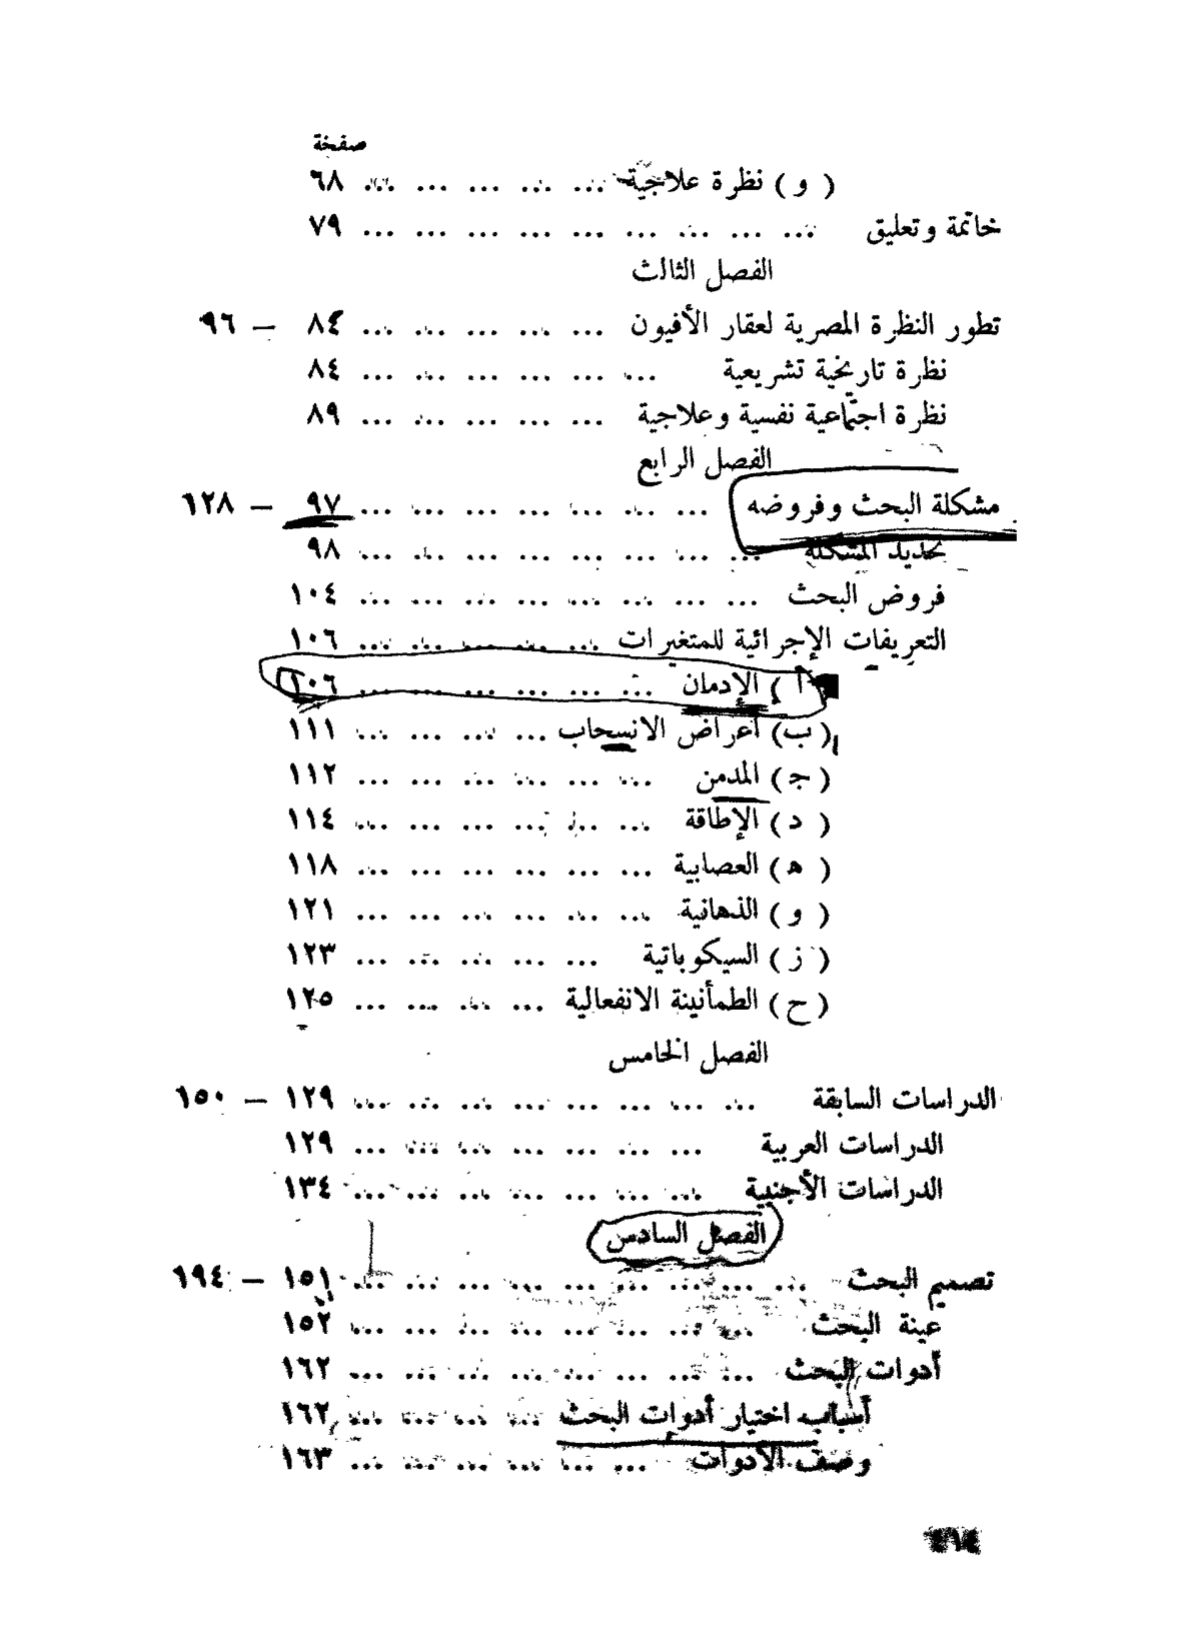 صفحة
( و ) نظرة علاجية ... ... ... ... ... ٦٨
خاتمة وتعليق ... ... ... ... ... ... ... ... ... ٧٩
الفصل الثالث
تطور النظرة المصرية لعقار الأفيون ... ... ... ... ... ٨٤ — ٩٦
نظرة تاريخية تشريعية ... ... ... ... ... ... ٨٤
نظرة اجتماعية نفسية وعلاجية ... ... ... ... ... ٨٩
الفصل الرابع
مشكلة البحث وفروضه ... ... ... ... ... ... ... ٩٧ — ١٢٨
تحديد المشكلة ... ... ... ... ... ... ... ... ٩٨
فروض البحث ... ... ... ... ... ... ... ... ١٠٤
التعريفات الإجرائية للمتغيرات ... ... ... ... ... ١٠٦
( أ ) الإدمان ... ... ... ... ... ... ١٠٦
(ب) أعراض الانسحاب ... ... ... ... ١١١
( جـ ) المدمن ... ... ... ... ... ... ١١٢
( د ) الإطاقة ... ... ... ... ... ... ١١٤
( هـ ) العصابية ... ... ... ... ... ... ١١٨
( و ) الذهانية ... ... ... ... ... ... ١٢١
( ز ) السيكوباتية ... ... ... ... ... ١٢٣
(ح) الطمأنينة الانفعالية ... ... ... ... ١٢٥
الفصل الخامس
الدراسات السابقة ... ... ... ... ... ... ... ... ١٢٩ — ١٥٠
الدراسات العربية ... ... ... ... ... ... ... ١٢٩
الدراسات الأجنبية ... ... ... ... ... ... ... ١٣٤
الفصل السادس
تصميم البحث ... ... ... ... ... ... ... ... ... ١٥١ — ١٩٤
عينة البحث ... ... ... ... ... ... ... ... ١٥٢
أدوات البحث ... ... ... ... ... ... ... ... ١٦٢
أسباب اختيار أدوات البحث ... ... ... ... ١٦٢
وصف الأدوات ... ... ... ... ... ... ١٦٣